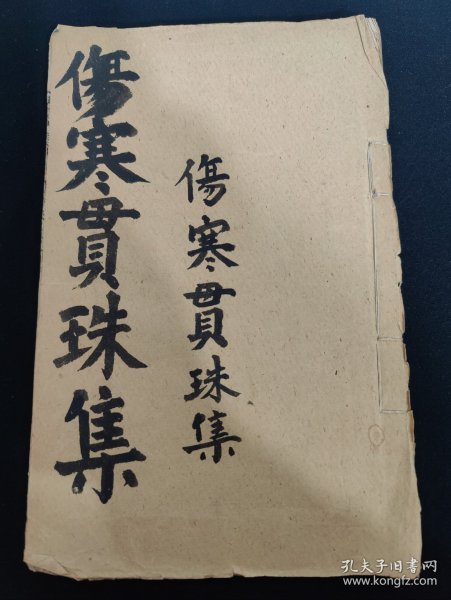 傷寒貫珠集
傷寒貫珠集
孔夫子旧书网
www.kongfz.com